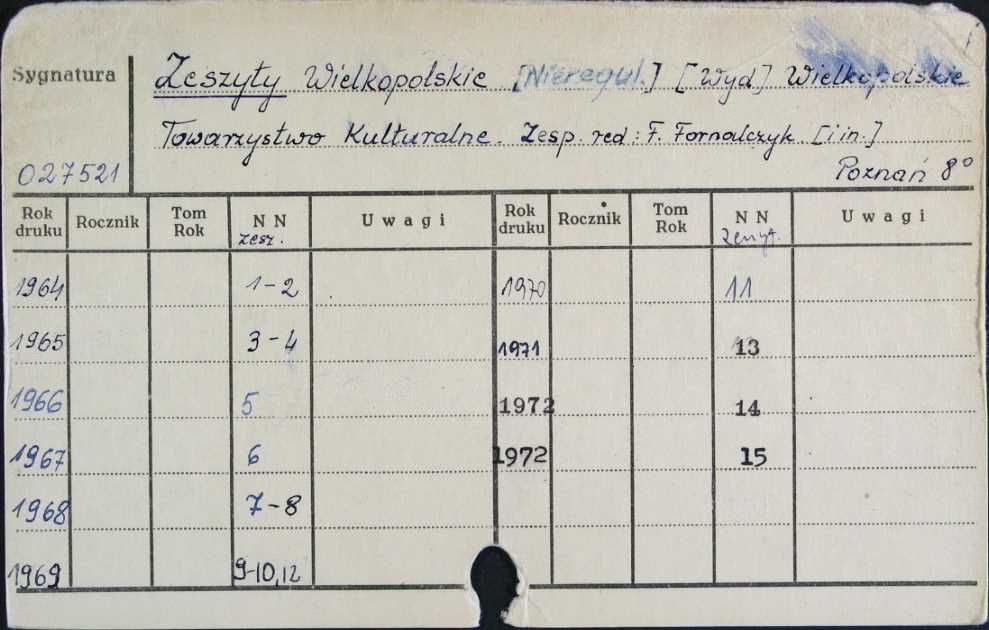 Sygnatura
027521
Zeszyty Wielkopolskie [Nieregul.] [Wyd] Wielkopolskie
Towarzystwo Kulturalne. Zesp. red: F. Fornalczyk [i in.]
Poznań 8°
Rok druku Rocznik Tom Rok NN zesz. Uwagi Rok druku Rocznik Tom Rok NN Zeszyt. Uwagi
1964 1-2 1970 11
1965 3-4 1971 13
1966 5 1972 14
1967 6 1972 15
1968 7-8
1969 9-10,12